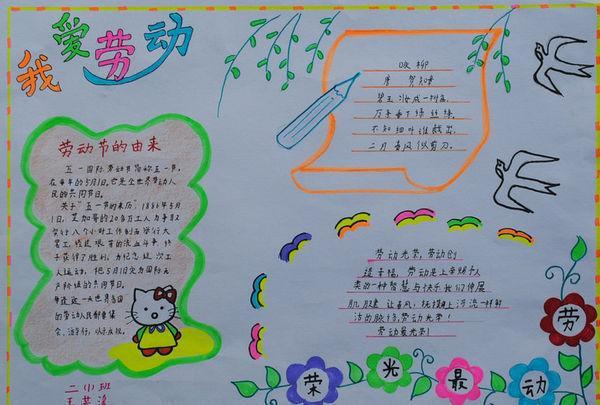 我爱劳动
劳动节的由来
五一国际劳动节简称五一节，
在每年的5月1日。它是全世界劳动人
民的共同节日。
关于"五一节的来历"，1886年5月
1日，芝加哥的20多万工人为争取
实行八个小时工作制而举行大
罢工，经过艰苦的流血斗争，终
于获得了胜利。为纪念这次工
人运动，把5月1日定为国际无
产阶级的共同节日。
每逢这一天世界各国
的劳动人民都要集
会、游行，以示庆祝。
二(1)班
咏柳
唐 贺知章
碧玉妆成一树高，
万条垂下绿丝绦。
不知细叶谁裁出，
二月春风似剪刀。
劳动光荣，劳动创
造幸福，劳动是上帝赐予人
类的一种智慧与快乐我们伸展
肌肤，让春风，抚摸
劳动光荣！
劳动最光荣！
荣光最动劳